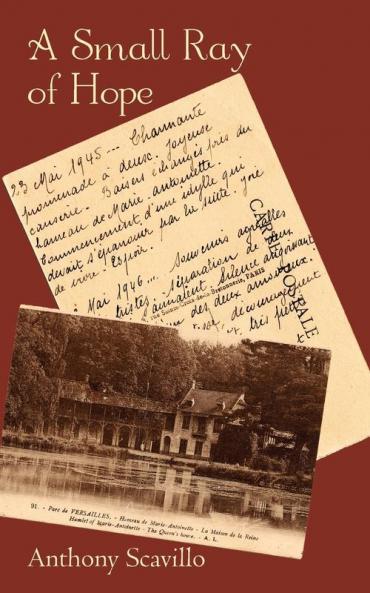 A Small Ray
of Hope
23 Mai 1945 ... Charmante
promenade à deux. Joyeuse
causerie. Baisers échangés près du
hameau de Marie-Antoinette.
Commencement d'une idylle qui
devait s'épanouir par la suite. Joie
de vivre. Espoir.
Mai 1946 ... Souvenirs
tristes. Séparation de deux
Silence angoissant
des deux amoureux.
découragement
très
CARTE POSTALE
rue Sainte-Croix-de-la-Bretonnerie, PARIS
91. - Parc de VERSAILLES. - Hameau de Marie-Antoinette - La Maison de la Reine
Hamlet of Marie-Antoinette - The Queen's house. - A. L.
Anthony Scavillo